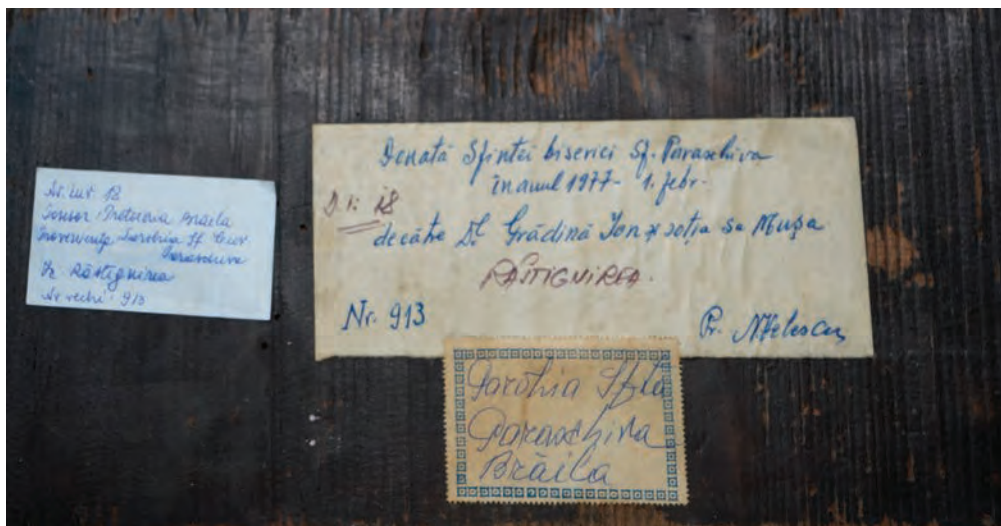 Nr. inv. 12
Sensor Protoieria Brăila
Provenienţa Parohia Sf. Cuv.
Paraschiva
Ic. Răstignirea
Nr. vechi 913
Donată Sfintei biserici Sf. Paraschiva
în anul 1977 - 1. febr.
D.I: 18
decătre Dl Grădină Ion și soția sa Mușa
RĂSTIGNIREA.
Nr. 913
Pr.
Parohia Sfta
Paraschiva
Brăila